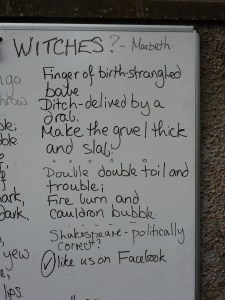 WITCHES? - Macbeth
Finger of birth-strangled
babe
Ditch-delived by a
drab.
Make the gruel thick
and slab.
Double double toil and
trouble;
Fire burn and
cauldron bubble.
Shakespeare - politically
correct?
like us on Facebook
ngo
hrow
ble
ark,
dark,
yew
lips.